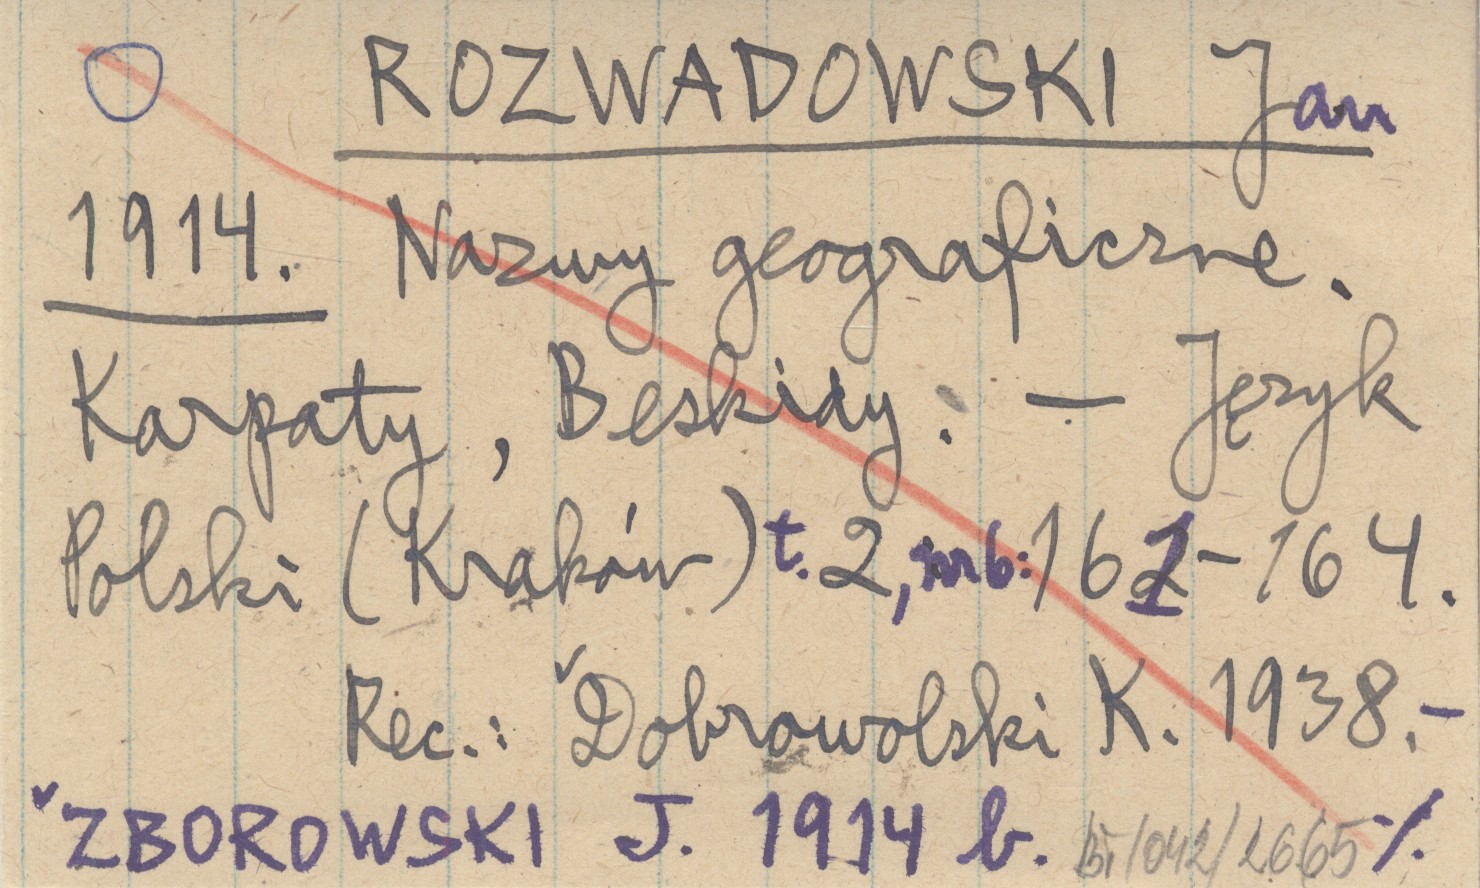 ROZWADOWSKI Jan
1914. Nazwy geograficzne.
Karpaty, Beskidy. — Język
Polski (Kraków) t. 2, nrb: 161-164.
Rec.: ˅Dobrowolski K. 1938.-
˅ZBOROWSKI J. 1914 b. ·/.
BJ/042/2665